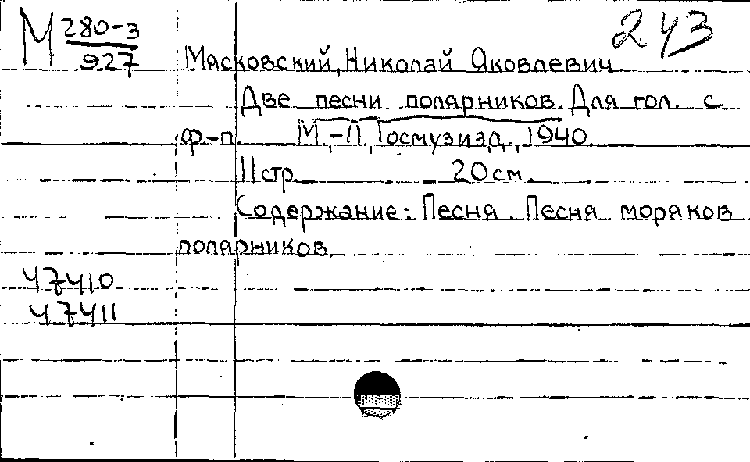 М 280-3
927
243
Мясковский, Николай Яковлевич
Две песни полярников. Для гол. с
ф-п. М.-Л., Госмузизд., 1940.
11 стр. 20 см.
Содержание: Песня. Песня моряков
полярников.
47410
47411